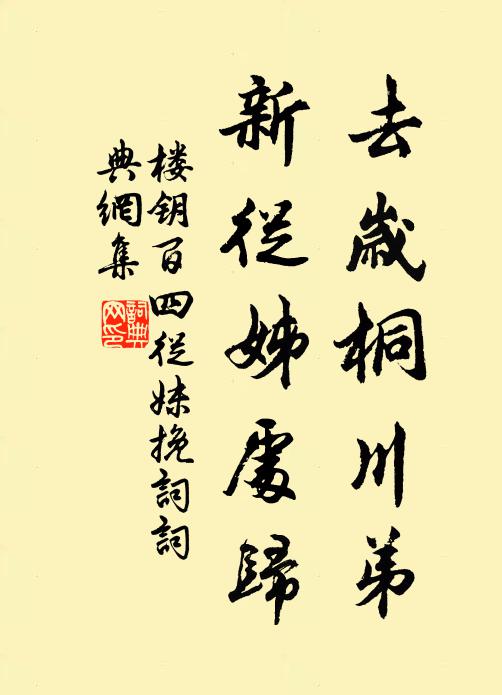 去歲桐川弟
新從姊處歸
楼钥百四從妹挽詞詞
典網集
詞典網印